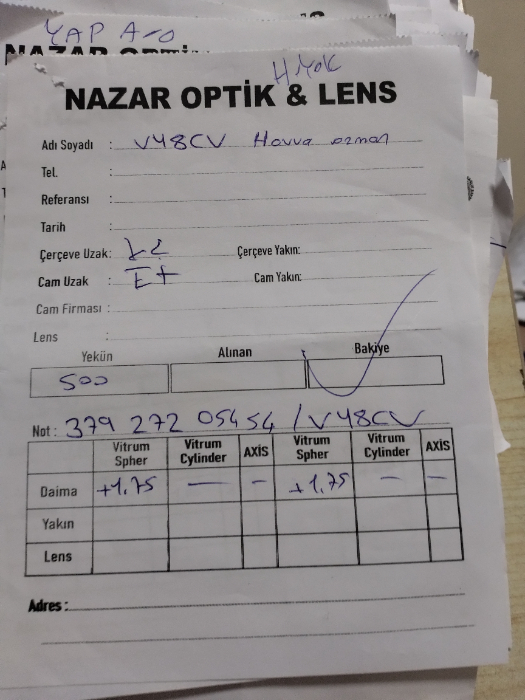 YAP A-0
NAZAR OPTİK
H.Yok
NAZAR OPTİK & LENS
Adı Soyadı : V48CV Havva ozman
Tel. :
Referansı :
Tarih :
Çerçeve Uzak: Çerçeve Yakın:
Cam Uzak : E+ Cam Yakın:
Cam Firması :
Lens :
Yekün Alınan Bakiye
500
Not : 379 272 05454 / V48CV
Vitrum Spher Vitrum Cylinder AXİS Vitrum Spher Vitrum Cylinder AXİS
Daima +1,75 — — +1,75 — —
Yakın
Lens
Adres :